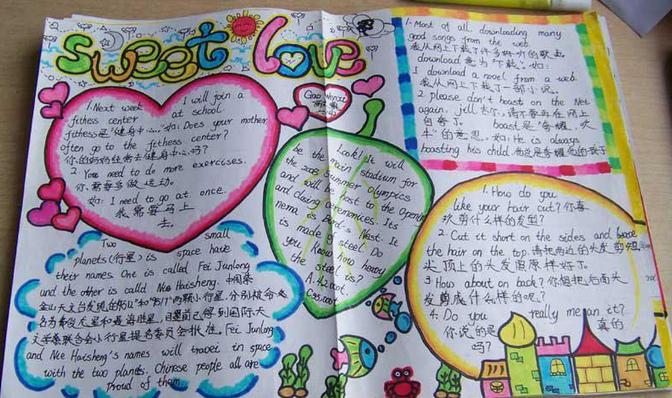 sweet love
1. Next week I will join a
fitness center at school.
fitness是"健身中心"如: Does your mother
often go to the fitness center?
你的妈妈经常去健身中心吗?
2. You need to do more exercises.
你需要多做运动。
如: I need to go at once.
我需要马上
去。
Look! It will
be the main stadium for
the 2008 Summer Olympics
and will be host to the Opening
and Closing ceremonies. Its
name is Bird's Nest. It
is made of steel. Do
you know how heavy
the steel is?
A. 42,000t.
1. Most of all downloading many
good songs from the web.
我从网上下载了许多好听的歌曲
download 意为"下载". 如:
I download a novel from a web.
我从网上下载了一部小说。
2. please don't boast on the Net
again, jill
boast是"夸耀, 吹
牛"的意思. 如: He is always
boasting his child.
1. How do you
like your hair cut? 你喜
欢剪什么样的发型?
2. Cut it short on the sides and
the hair on the top. 请把两边的头发剪短,
头顶上的头发照原样好了。
3 How about on back? 你想把后面头
发剪成什么样的呢?
4. Do you really mean it?
你说的是真的
吗?
Two small
planets (行星) in space have
their names. One is called Fei Junlong
and the other is called Nie Haisheng. 中国紫
金山天文台发现的 两颗小行星, 分别被命
名为费俊龙星和聂海胜星, 日前已得到国际天
文学联合会小行星提名委员会批准. Fei Junlong
and Nie Haisheng's names will travel in space
with the two planets. Chinese people all are
proud of them.